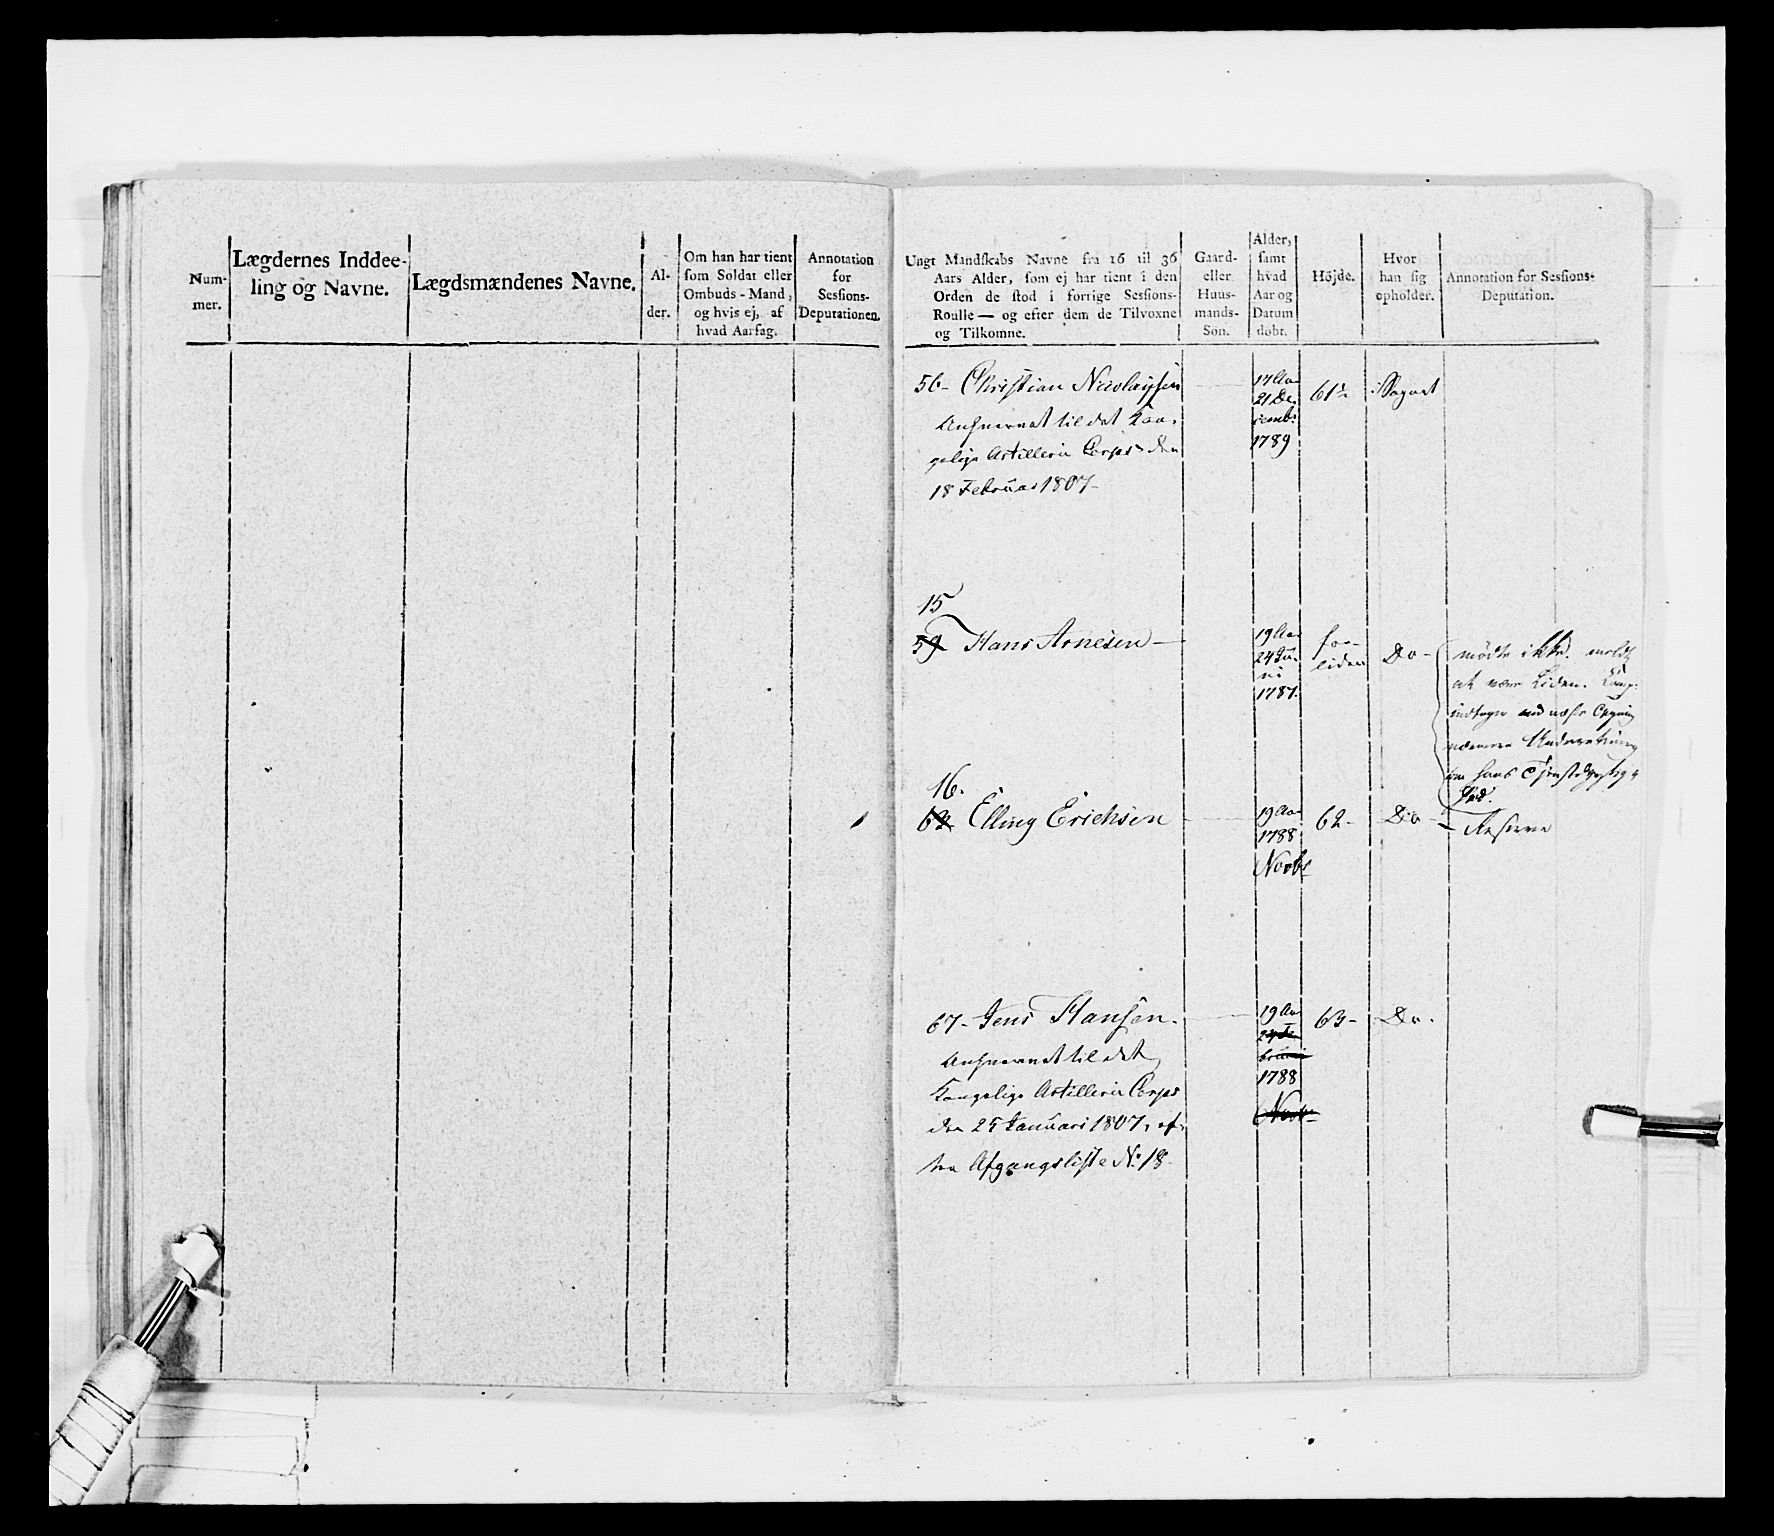 Num-
mer.
Lægdernes Inddee-
ling og Navne.
Lægdsmændenes Navne.
Al-
der.
Om han har tient
som Soldat eller
Ombuds-Mand,
og hvis ej, af
hvad Aarsag.
Annotation
for
Sessions-
Deputationen.
Ungt Mandskabs Navne fra 16 til 36
Aars Alder, som ej har tient i den
Orden de stod i forrige Sessions-
Roulle — og efter dem de Tilvoxne
og Tilkomne.
Gaard-
eller
Huus-
mands-
Søn.
Alder,
samt
hvad
Aar og
Datum
døbt.
Højde.
Hvor
han sig
opholder.
Annotation for Sessions-
Deputation.
56- Christian Nicolaysen
til det Kon-
gelige Artillerie Corps den
18 Februar 1807-
17 Aar
21 De-
cembr:
1789
61½
15
59 Hans Arnesen —
19 Aar
24 Ju-
ni
1787.
for
liden
Do -
mødte ikke. meldt
at være Liden.
ved næste
nærmere Underretning
om hans
16.
62 Elling Erichsen
19 Aar
1788
Novbr
62-
Do -
Reserve
67- Jens Hansen.
til det
Kongelige Artillerie Corps
den 25 Januari 1807, ef-
ter Afgangsliste No. 18
19 Aar
1788
Novbr
63-
Do.